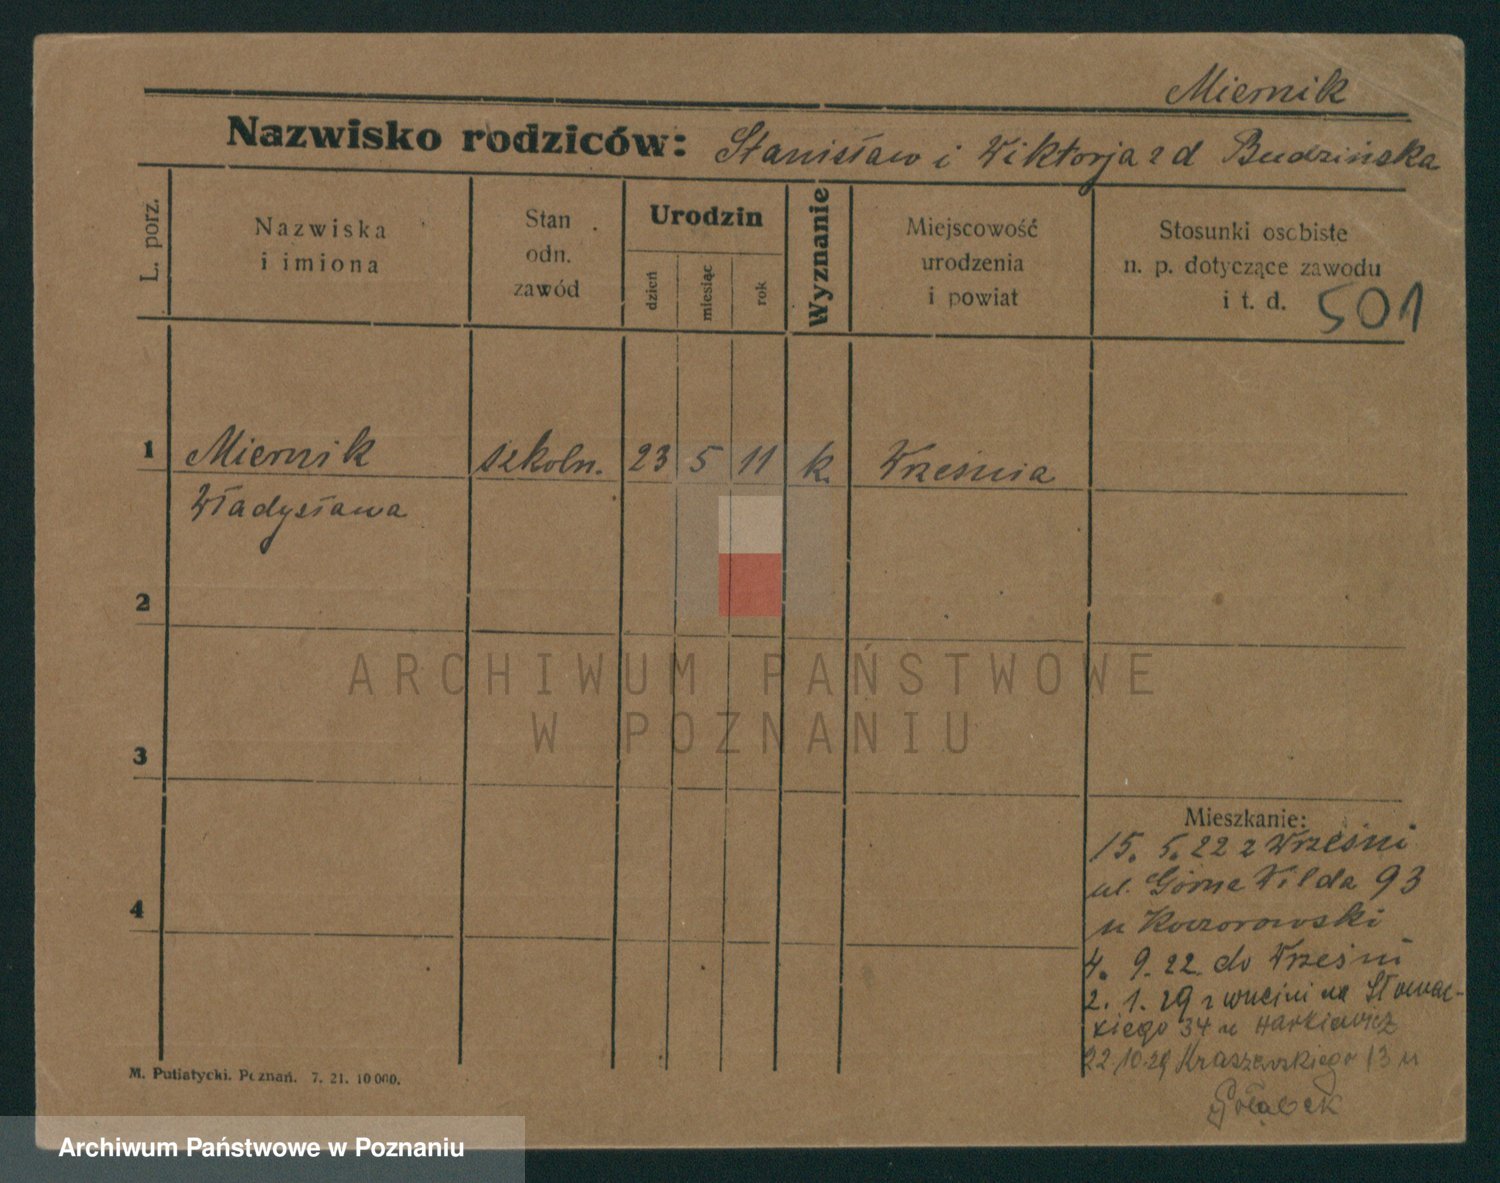 Miernik
Nazwisko rodziców: Stanisław i Wiktorja z d Budzińska
L. porz.
Nazwiska
i imiona
Stan
odn.
zawód
Urodzin
dzień
miesiąc
rok
Wyznanie
Miejscowość
urodzenia
i powiat
Stosunki osobiste
n. p. dotyczące zawodu
i t. d. 501
1 Miernik szkoln. 23 5 11 k. Września
Władysława
2
ARCHIWUM PAŃSTWOWE
W POZNANIU
3
Mieszkanie:
15. 5. 22 z Wrześni
ul. Górna Wilda 93
u Koczorowski
4
4. 9. 22 do Wrześni
2. 1. 29 z na Słowac-
kiego 34 u Harkiewicz
22.10.29 Kraszewskiego 13 u
Gołąbek
M. Putiatycki. Poznań. 7. 21. 10 000.
Archiwum Państwowe w Poznaniu